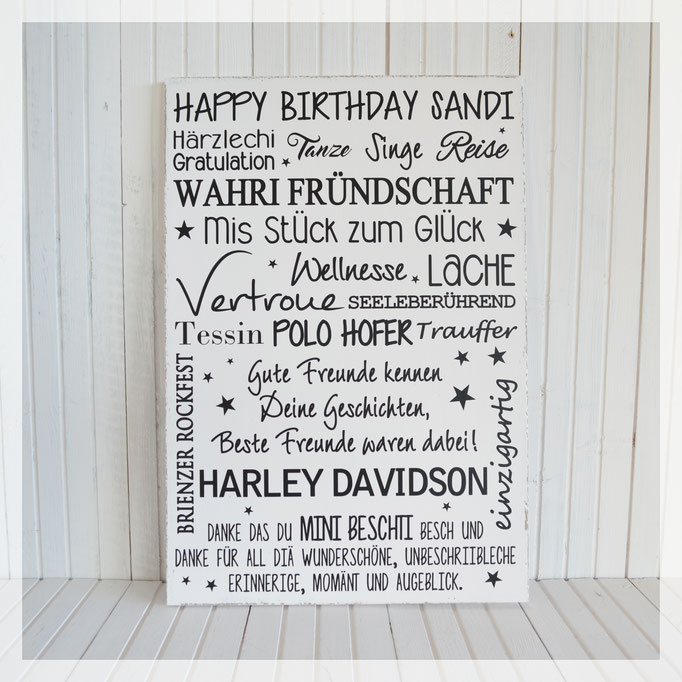 HAPPY BIRTHDAY SANDI
Härzlechi Gratulation Tanze Singe Reise
WAHRI FRÜNDSCHAFT
Mis Stück zum Glück
Wellnesse LACHE
Vertroue SEELEBERÜHREND
Tessin POLO HOFER Trauffer
BRIENZER ROCKFEST
Gute Freunde kennen
Deine Geschichten,
Beste Freunde waren dabei!
einzigartig
HARLEY DAVIDSON
DANKE DAS DU MINI BESCHTI BESCH UND
DANKE FÜR ALL DIÄ WUNDERSCHÖNE, UNBESCHRIIBLECHE
ERINNERIGE, MOMÄNT UND AUGEBLICK.